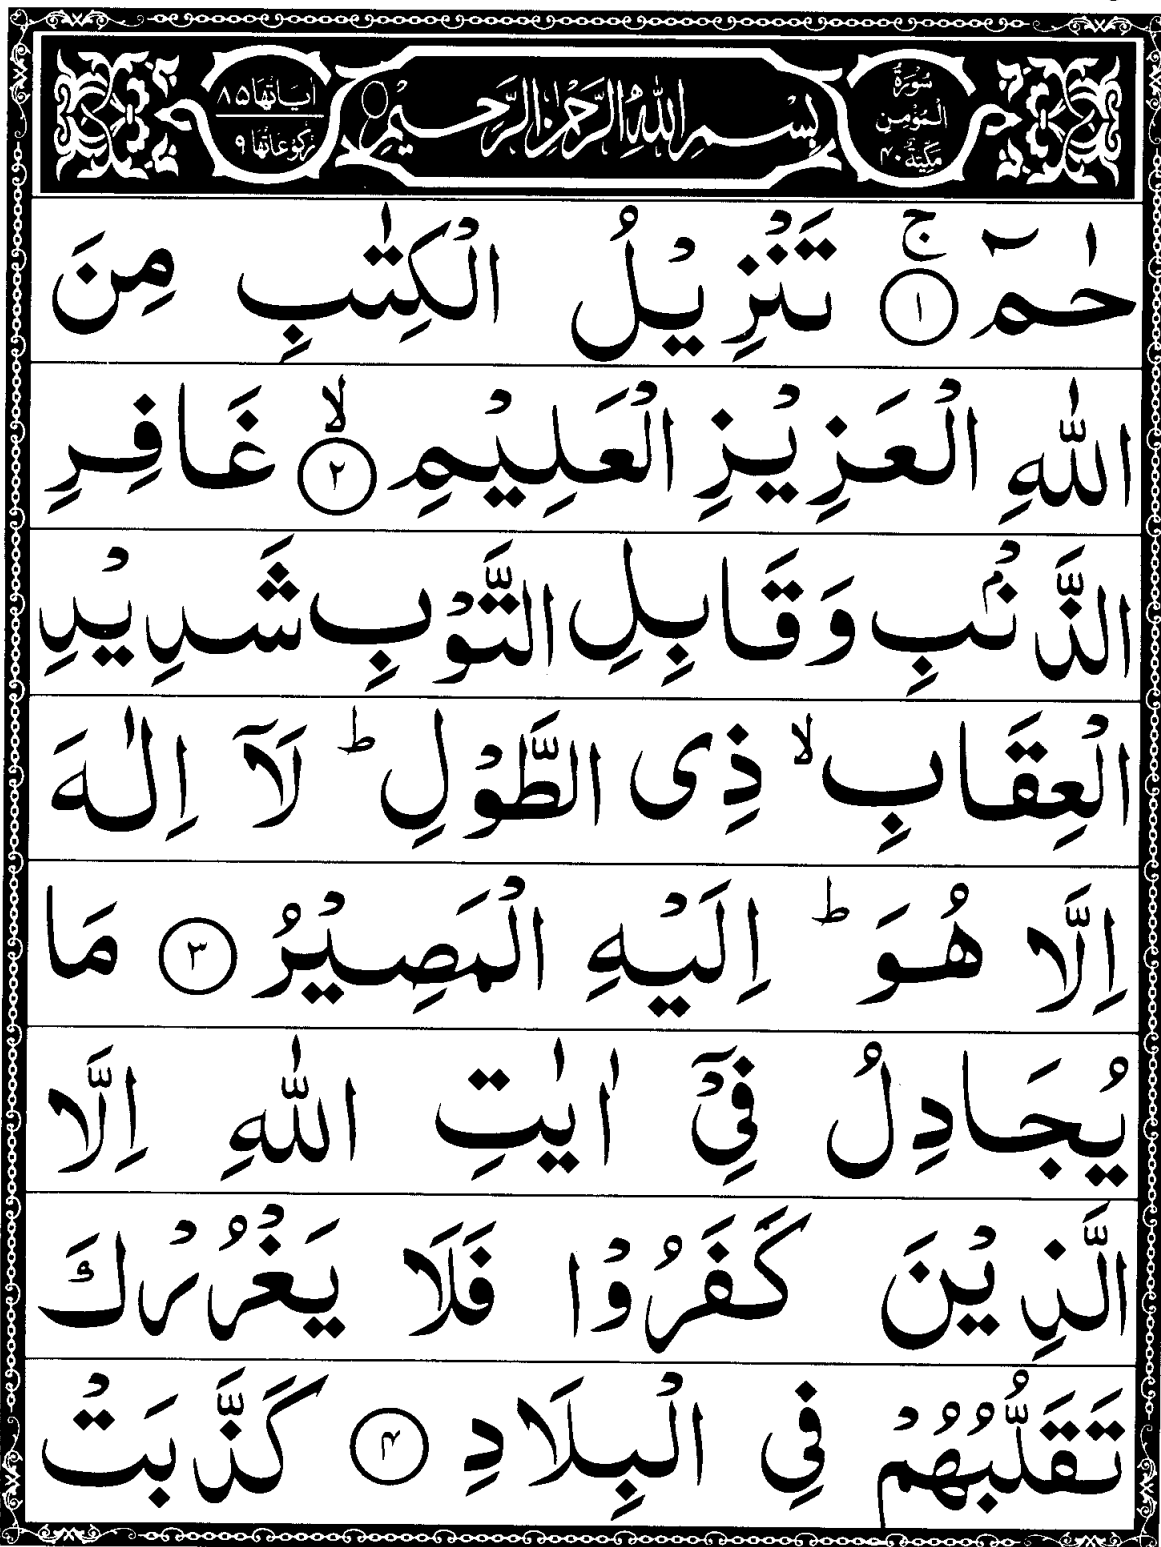 سُوْرَةُ الْمُؤْمِنِ مَكِّيَّةٌ ۴۰
بِسْمِ اللّٰهِ الرَّحْمٰنِ الرَّحِيْمِ
اٰيَاتُهَا ۸۵
رُكُوْعَاتُهَا ۹
حٰمٓ ۚ ﴿۱﴾ تَنْزِيْلُ الْكِتٰبِ مِنَ
اللّٰهِ الْعَزِيْزِ الْعَلِيْمِ ۙ ﴿۲﴾ غَافِرِ
الذَّنْۢبِ وَقَابِلِ التَّوْبِ شَدِيْدِ
الْعِقَابِ ۙ ذِى الطَّوْلِ ؕ لَآ اِلٰهَ
اِلَّا هُوَ ؕ اِلَيْهِ الْمَصِيْرُ ﴿۳﴾ مَا
يُجَادِلُ فِىْٓ اٰيٰتِ اللّٰهِ اِلَّا
الَّذِيْنَ كَفَرُوْا فَلَا يَغْرُرْكَ
تَقَلُّبُهُمْ فِى الْبِلَادِ ﴿۴﴾ كَذَّبَتْ